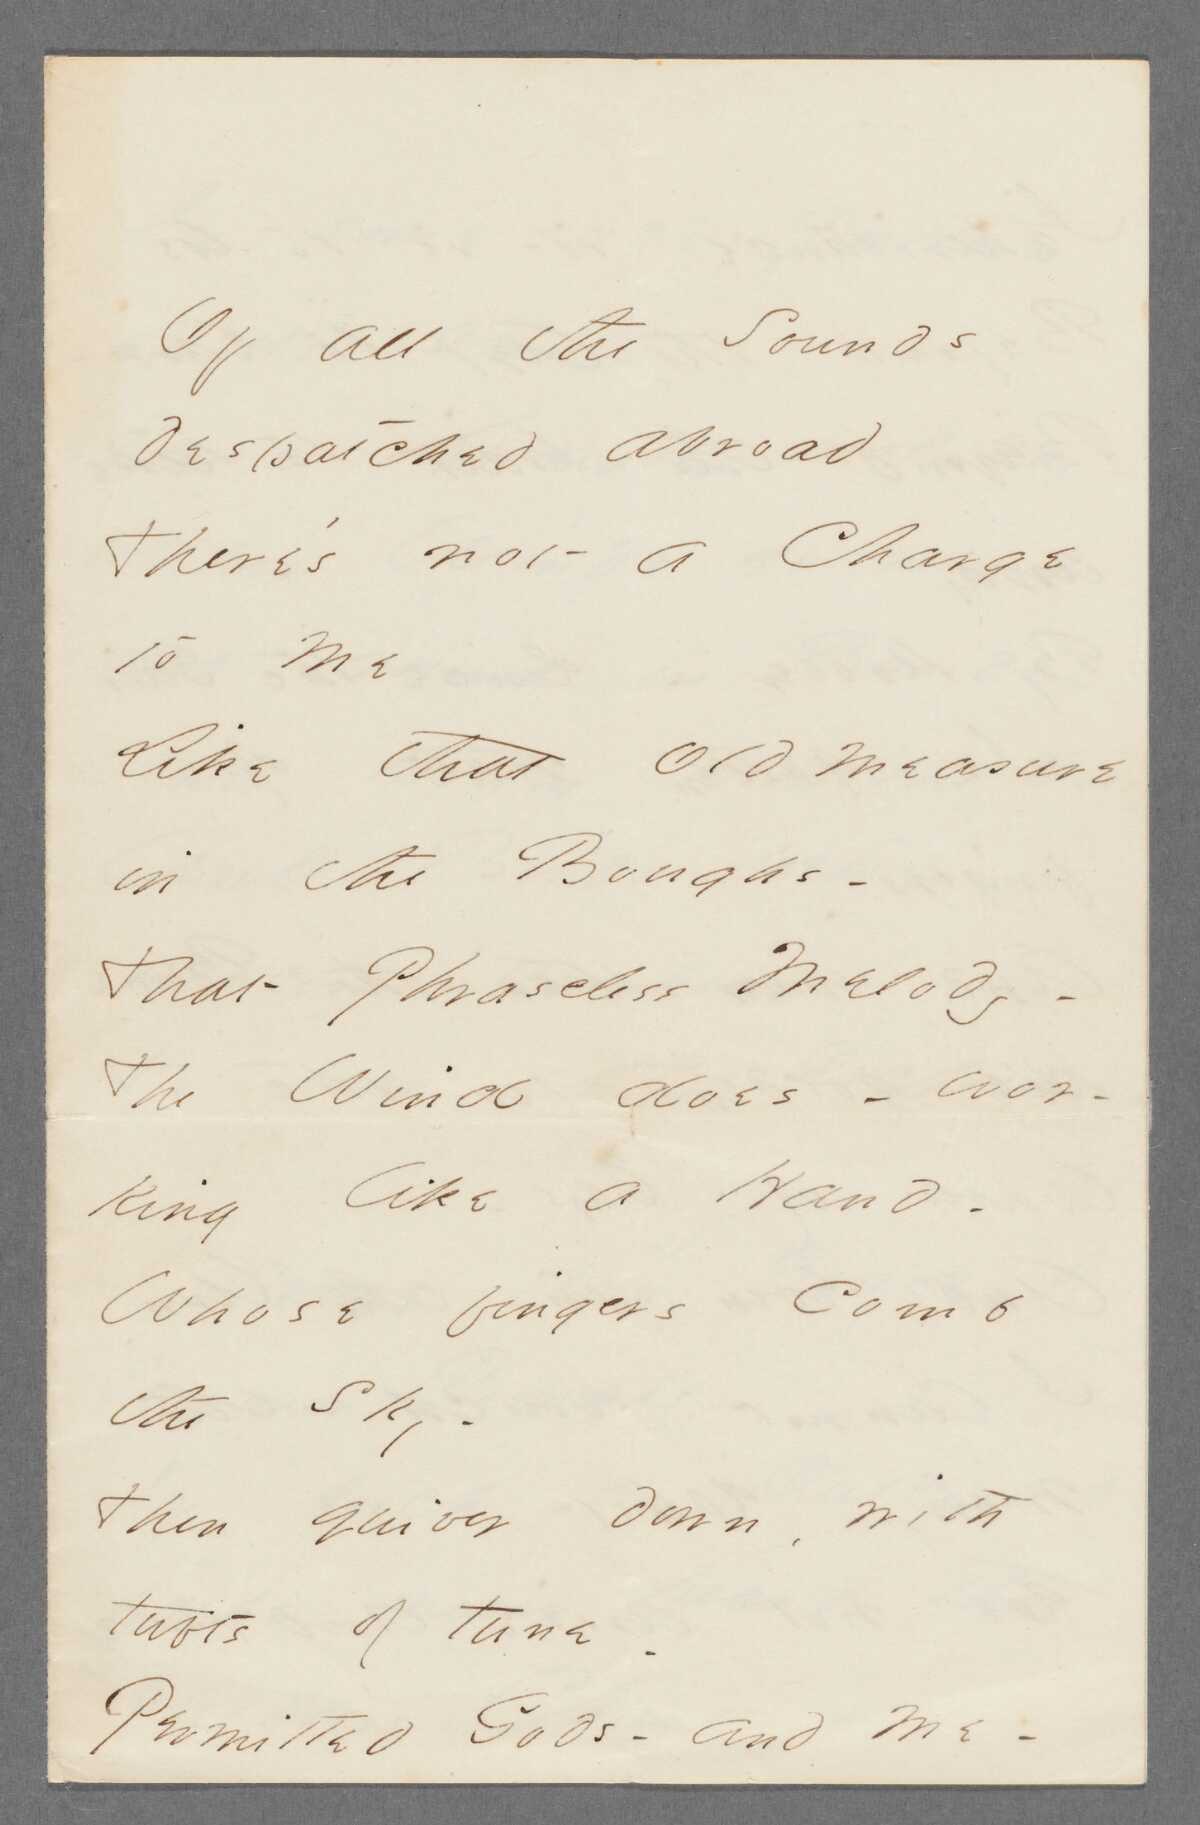 Of all the Sounds
despatched abroad
There's not a Charge
to me
Like that Old measure
in the Boughs -
That Phraseless Melody -
The Wind does - wor-
king like a Hand -
Whose fingers Comb
the Sky -
Then quiver down, with
tufts of tune -
Permitted Gods - and me -